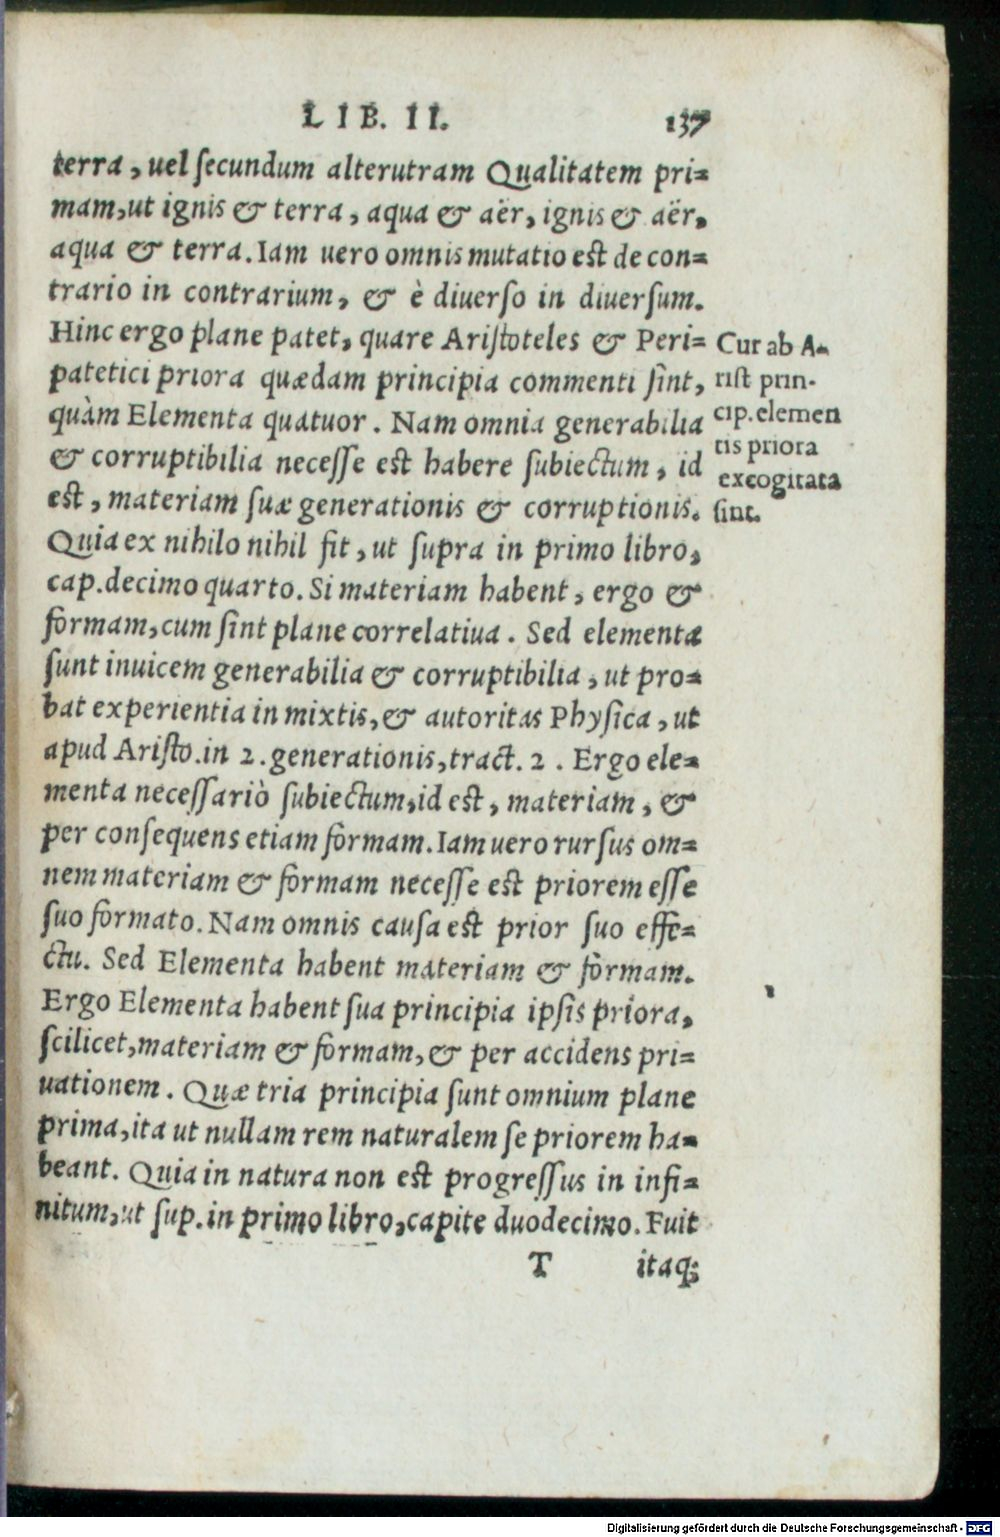 LIB. II. 137
terra, uel secundum alterutram Qualitatem pri=
mam,ut ignis & terra, aqua & aër, ignis & aër,
aqua & terra. Iam uero omnis mutatio est de con=
trario in contrarium, & è diuerso in diuersum.
Hinc ergo plane patet, quare Aristoteles & Peri=
patetici priora quædam principia commenti sint,
quàm Elementa quatuor. Nam omnia generabilia
& corruptibilia necesse est habere subiectum, id
est, materiam suæ generationis & corruptionis.
Quia ex nihilo nihil fit, ut supra in primo libro,
cap.decimo quarto. Si materiam habent, ergo &
formam,cum sint plane correlatiua. Sed elementa
sunt inuicem generabilia & corruptibilia, ut pro=
bat experientia in mixtis,& autoritas Physica, ut
apud Aristo.in 2.generationis,tract. 2. Ergo ele=
menta necessariò subiectum,id est, materiam, &
per consequens etiam formam. Iam uero rursus om=
nem materiam & formam necesse est priorem esse
suo formato. Nam omnis causa est prior suo effe=
ctu. Sed Elementa habent materiam & formam.
Ergo Elementa habent sua principia ipsis priora,
scilicet,materiam & formam,& per accidens pri=
uationem. Quæ tria principia sunt omnium plane
prima,ita ut nullam rem naturalem se priorem ha=
beant. Quia in natura non est progressus in infi=
nitum,ut sup.in primo libro,capite duodecimo. Fuit
T itaq;
Cur ab A-
rist prin-
cip.elemen
tis priora
excogitata
sint.
Digitalisierung gefördert durch die Deutsche Forschungsgemeinschaft - DFG